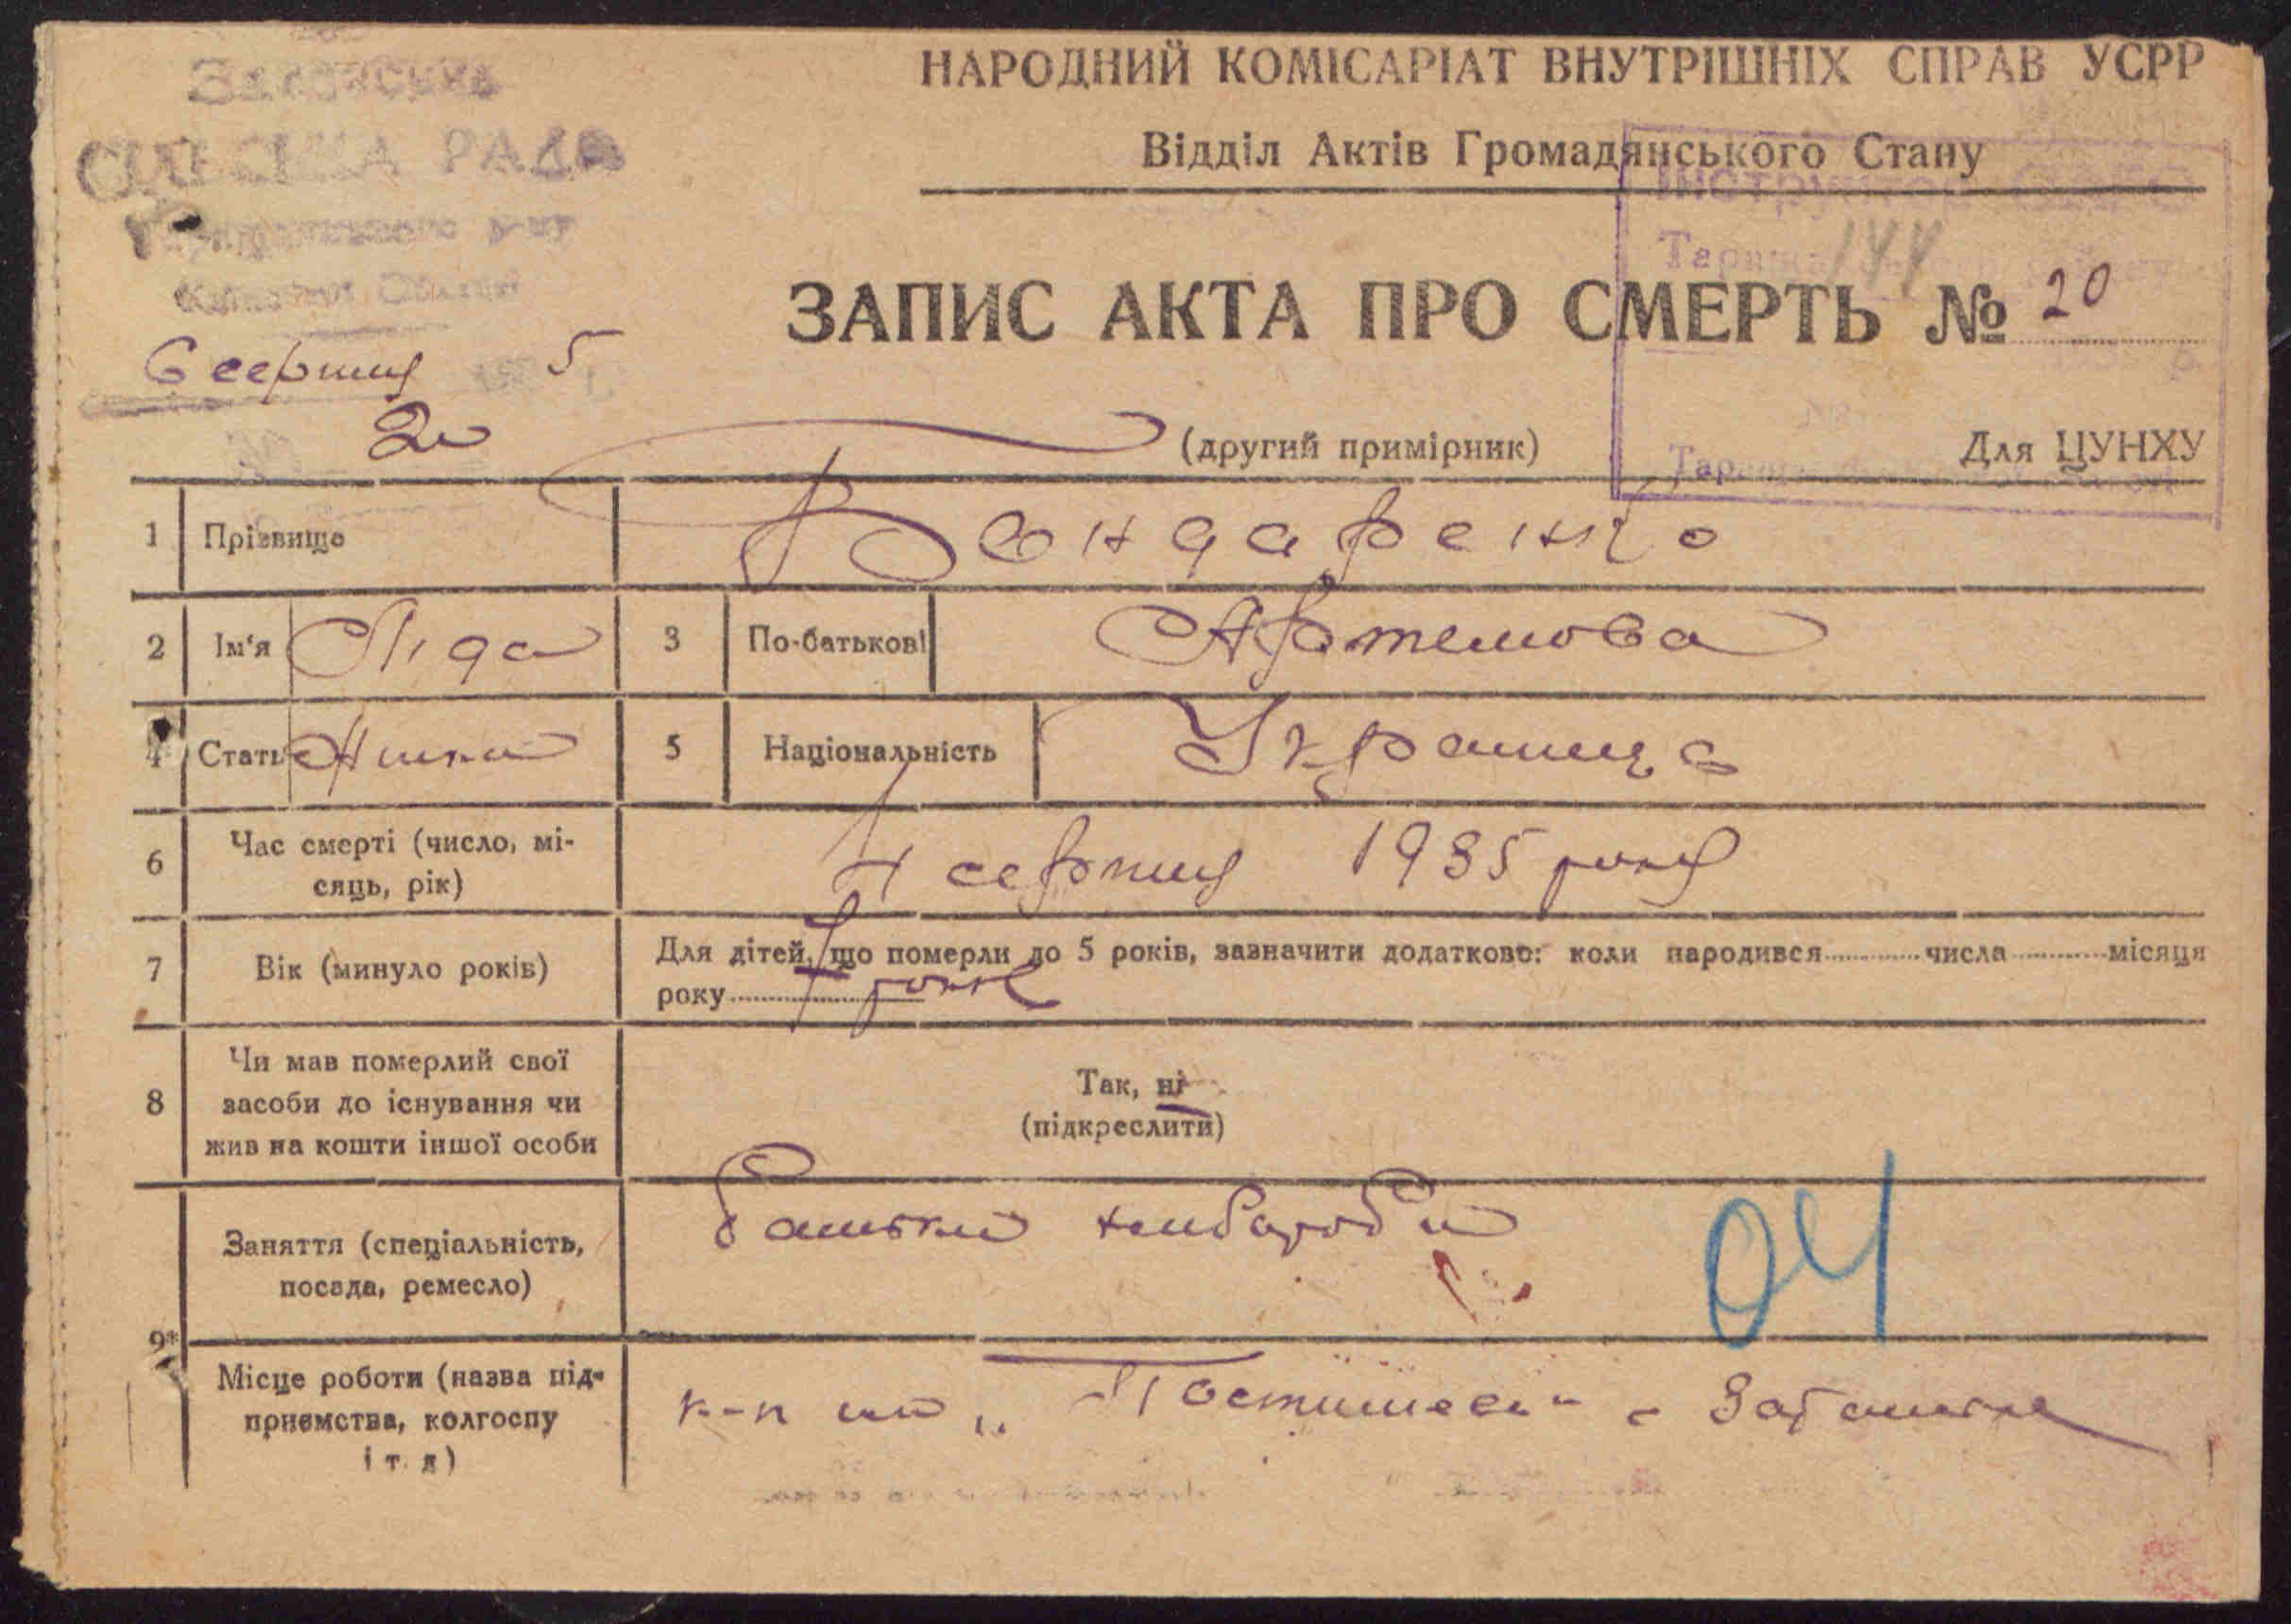 СІЛЬСЬКА РАДА
НАРОДНИЙ КОМІСАРІАТ ВНУТРІШНІХ СПРАВ УСРР
Відділ Актів Громадянського Стану
144
ЗАПИС АКТА ПРО СМЕРТЬ № 20
6 серпня 5
20
(другий примірник) Для ЦУНХУ
1 Прізвище Бондаренко
2 Ім'я Ліда 3 По-батькові Артемова
4 Стать Жінка 5 Національність Українка
6 Час смерті (число, мі-
сяць, рік) 4 серпня 1935 року
7 Вік (минуло років) Для дітей, що померли до 5 років, зазначити додатково: коли народився числа місяця
року 7 років
8 Чи мав померлий свої
засоби до існування чи
жив на кошти іншої особи
Так, ні
(підкреслити)
Заняття (спеціальність,
посада, ремесло) батьки хлібороби
04
9*
Місце роботи (назва під-
приємства, колгоспу
і т. д) к-п ім „Постишева"